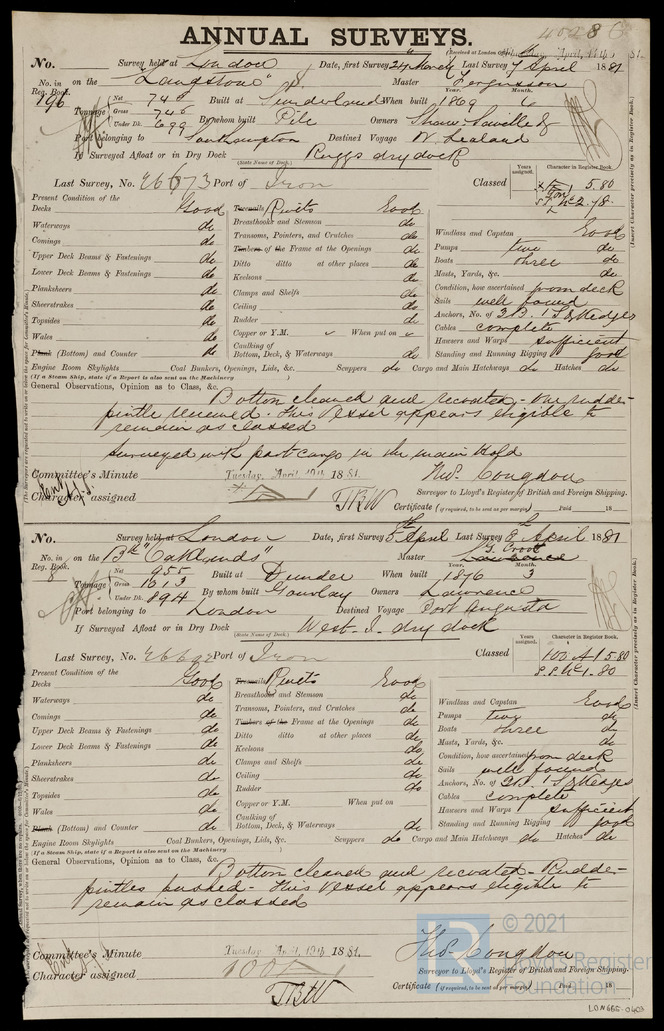 ANNUAL SURVEYS.
(Received at London Office, Tuesday, April, 19th 1881.
No. Survey held at London Date, first Survey 24 March Last Survey 7 April 1881
No. in Reg. Book. 196 on the "Langstone" Master Fergusson
Tonnage Net 746 Gross 746 Under Dk. 699 Built at Sunderland When built Year. 1869 Month. 6
By whom built Pile Owners Shaw Savill & Co
Port belonging to Southampton Destined Voyage N. Zealand
If Surveyed Afloat or in Dry Dock Ruggs dry dock
(State Name of Dock.)
Last Survey, No. Port of Iron Classed
Years assigned. Character in Register Book.
5.80
Present Condition of the
Decks Good Treenails Rivets Good
Waterways do Breasthooks and Stemson do
Comings do Transoms, Pointers, and Crutches do
Upper Deck Beams & Fastenings do Timbers of the Frame at the Openings do
Lower Deck Beams & Fastenings do Ditto ditto at other places do
Planksheers do Keelsons do
Sheerstrakes do Clamps and Shelfs do
Topsides do Ceiling do
Wales do Rudder do
Plank (Bottom) and Counter do Copper or Y.M. When put on
Caulking of Bottom, Deck, & Waterways do
Windlass and Capstan Good
Pumps two do
Boats three do
Masts, Yards, &c. do
Condition, how ascertained from deck
Sails well found
Anchors, No. of 3B. 1S 2 Kedges
Cables complete
Hawsers and Warps sufficient
Standing and Running Rigging good
Engine Room Skylights Coal Bunkers, Openings, Lids, &c. Scuppers do Cargo and Main Hatchways do Hatches do
(If a Steam Ship, state if a Report is also sent on the Machinery )
General Observations, Opinion as to Class, &c.
Bottom cleaned and recoated - One rudder-
pintle renewed. This Vessel appears eligible to
remain as classed
Surveyed with part cargo in the main Hold
Committee's Minute Tuesday, April 19th 1881. Thos. Congdon
Surveyor to Lloyd's Register of British and Foreign Shipping.
Character assigned TBW
Certificate (if required, to be sent as per margin) Paid 18
No. Survey held at London Date, first Survey 5th April Last Survey 8 April 1881
No. in Reg. Book. 8 on the "Oaklands" Master G. Croot Lawrence
Tonnage Net 955 Gross 1013 Under Dk. 894 Built at Dundee When built Year. 1876 Month. 3
By whom built Gourlay Owners Lawrence
Port belonging to London Destined Voyage Port Augusta
If Surveyed Afloat or in Dry Dock West. I. dry dock
(State Name of Dock.)
Last Survey, No. Port of Iron Classed
Years assigned. Character in Register Book.
100 A1 5.80
Present Condition of the
Decks Good Treenails Rivets Good
Waterways do Breasthooks and Stemson do
Comings do Transoms, Pointers, and Crutches do
Upper Deck Beams & Fastenings do Timbers of the Frame at the Openings do
Lower Deck Beams & Fastenings do Ditto ditto at other places do
Planksheers do Keelsons do
Sheerstrakes do Clamps and Shelfs do
Topsides do Ceiling do
Wales do Rudder do
Plank (Bottom) and Counter do Copper or Y.M. When put on
Caulking of Bottom, Deck, & Waterways do
Windlass and Capstan Good
Pumps two do
Boats three do
Masts, Yards, &c. do
Condition, how ascertained from deck
Sails well found
Anchors, No. of 3B. 1S 2 Kedges
Cables complete
Hawsers and Warps sufficient
Standing and Running Rigging good
Engine Room Skylights Coal Bunkers, Openings, Lids, &c. Scuppers do Cargo and Main Hatchways do Hatches do
(If a Steam Ship, state if a Report is also sent on the Machinery )
General Observations, Opinion as to Class, &c.
Bottom cleaned and recoated - Rudder-
pintles bushed - This Vessel appears eligible to
remain as classed
Committee's Minute Tuesday April 19th 1881. Thos. Congdon
Surveyor to Lloyd's Register of British and Foreign Shipping.
Character assigned 100A TBW
Certificate (if required, to be sent as per margin) Paid 18
(Insert Character precisely as in Register Book.)
© 2021
Lloyd's Register
Foundation
LON665-0403